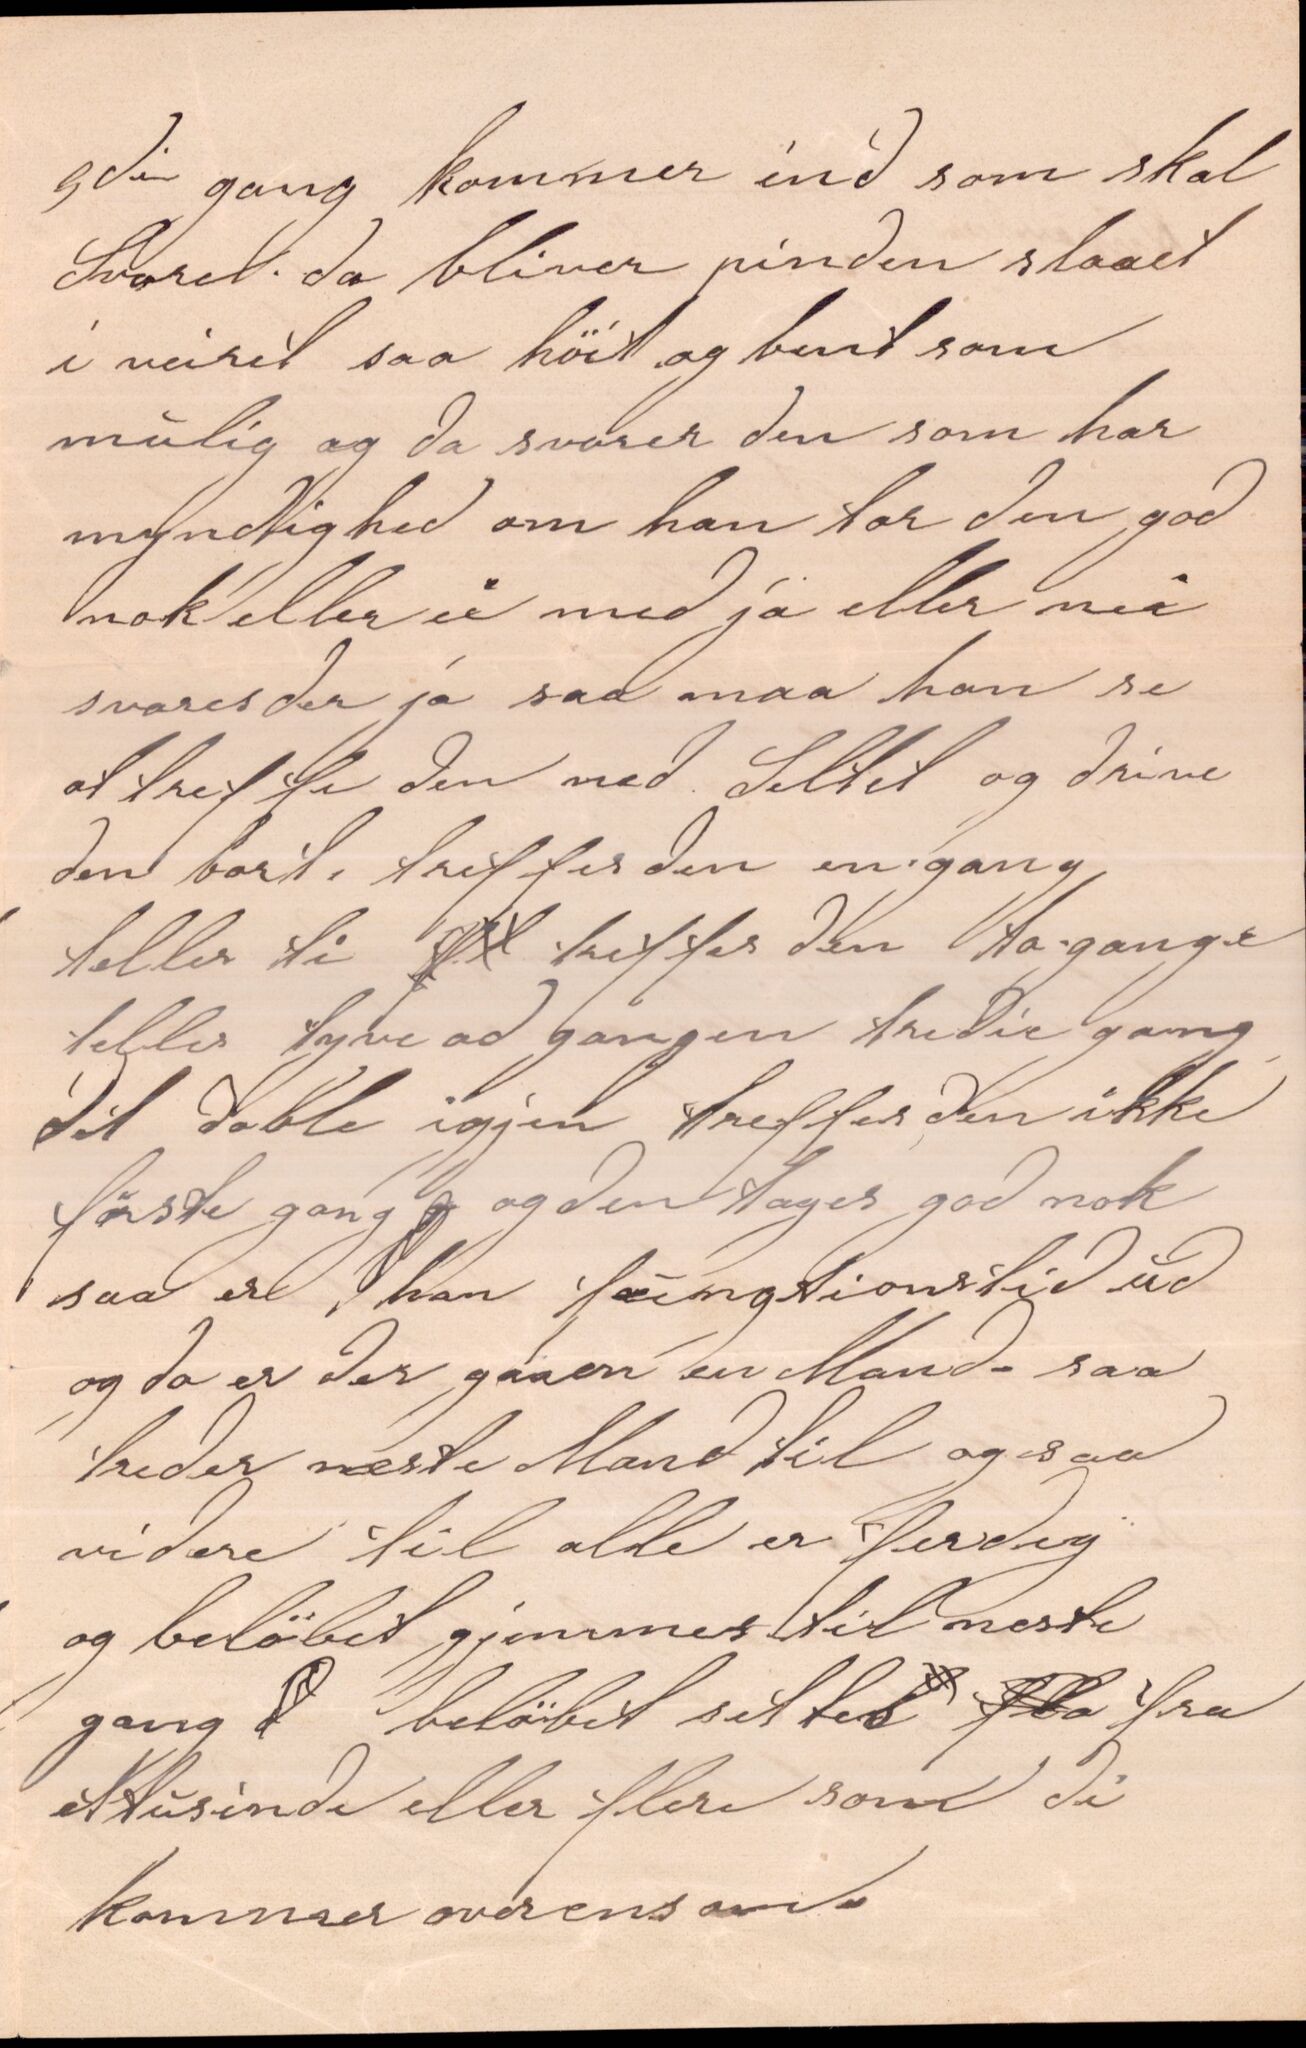 5die gang kommer ind som skal
Svaret. da bliver pinden slaaet
i veiret saa höit og bent som
mŭlig og da svarer den som har
myndtighed om han tar den god
nok eller ei med ja eller nei
svares der ja saa maa han se
at treffe den med Seltet og drive
den bort. treffes den en gang
telles ti treffes den to gange
telles tyve ad gangen tredie gang
det doble igjen treffes den ikke
förste gang og den tages god nok
saa er han fŭngtionstid ŭd
og da er der gaaen en Mand saa
treder næste Mand til og saa
videre til alle er ferdig
og belöbet gjemmes til neste
gang belöbet settes fra
ettŭsinde eller flere som di
kommer overens om.